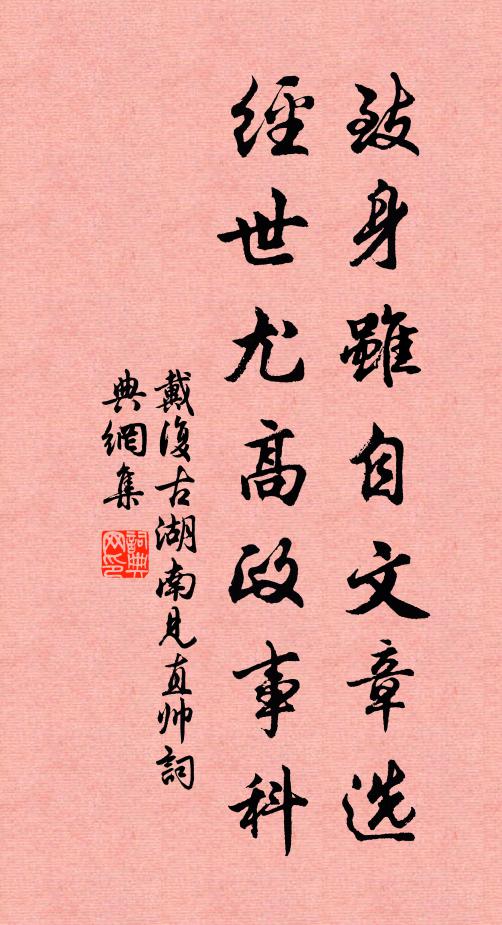 致身雖自文章选
經世尤高政事科
戴復古湖南見真帅詞
典網集
詞典网印